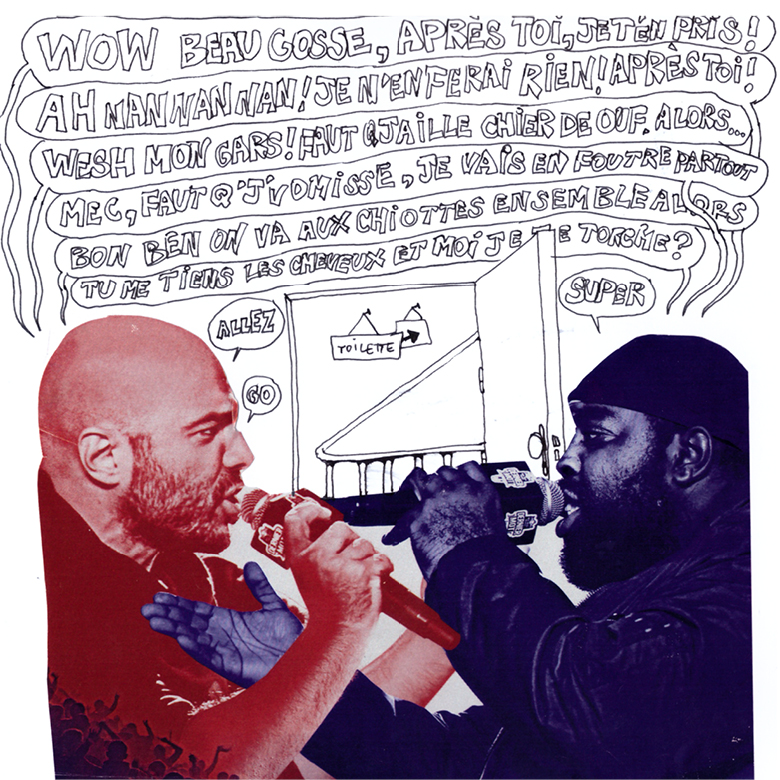 WOW BEAU GOSSE, APRÈS TOI, JE T'EN PRIS!
AH NAN NAN NAN! JE N'EN FERAI RIEN! APRÈS TOI!
WESH MON GARS! FAUT QJAILLE CHIER DE OUF. ALORS...
MEC, FAUT Q'J'VOMISSE, JE VAIS EN FOUTRE PARTOUT
BON BÉN ON VA AUX CHIOTTES ENSEMBLE ALORS
TU ME TIENS LES CHEVEUX ET MOI JE TE TORCHE?
ALLEZ
SUPER
TOILETTE
GO